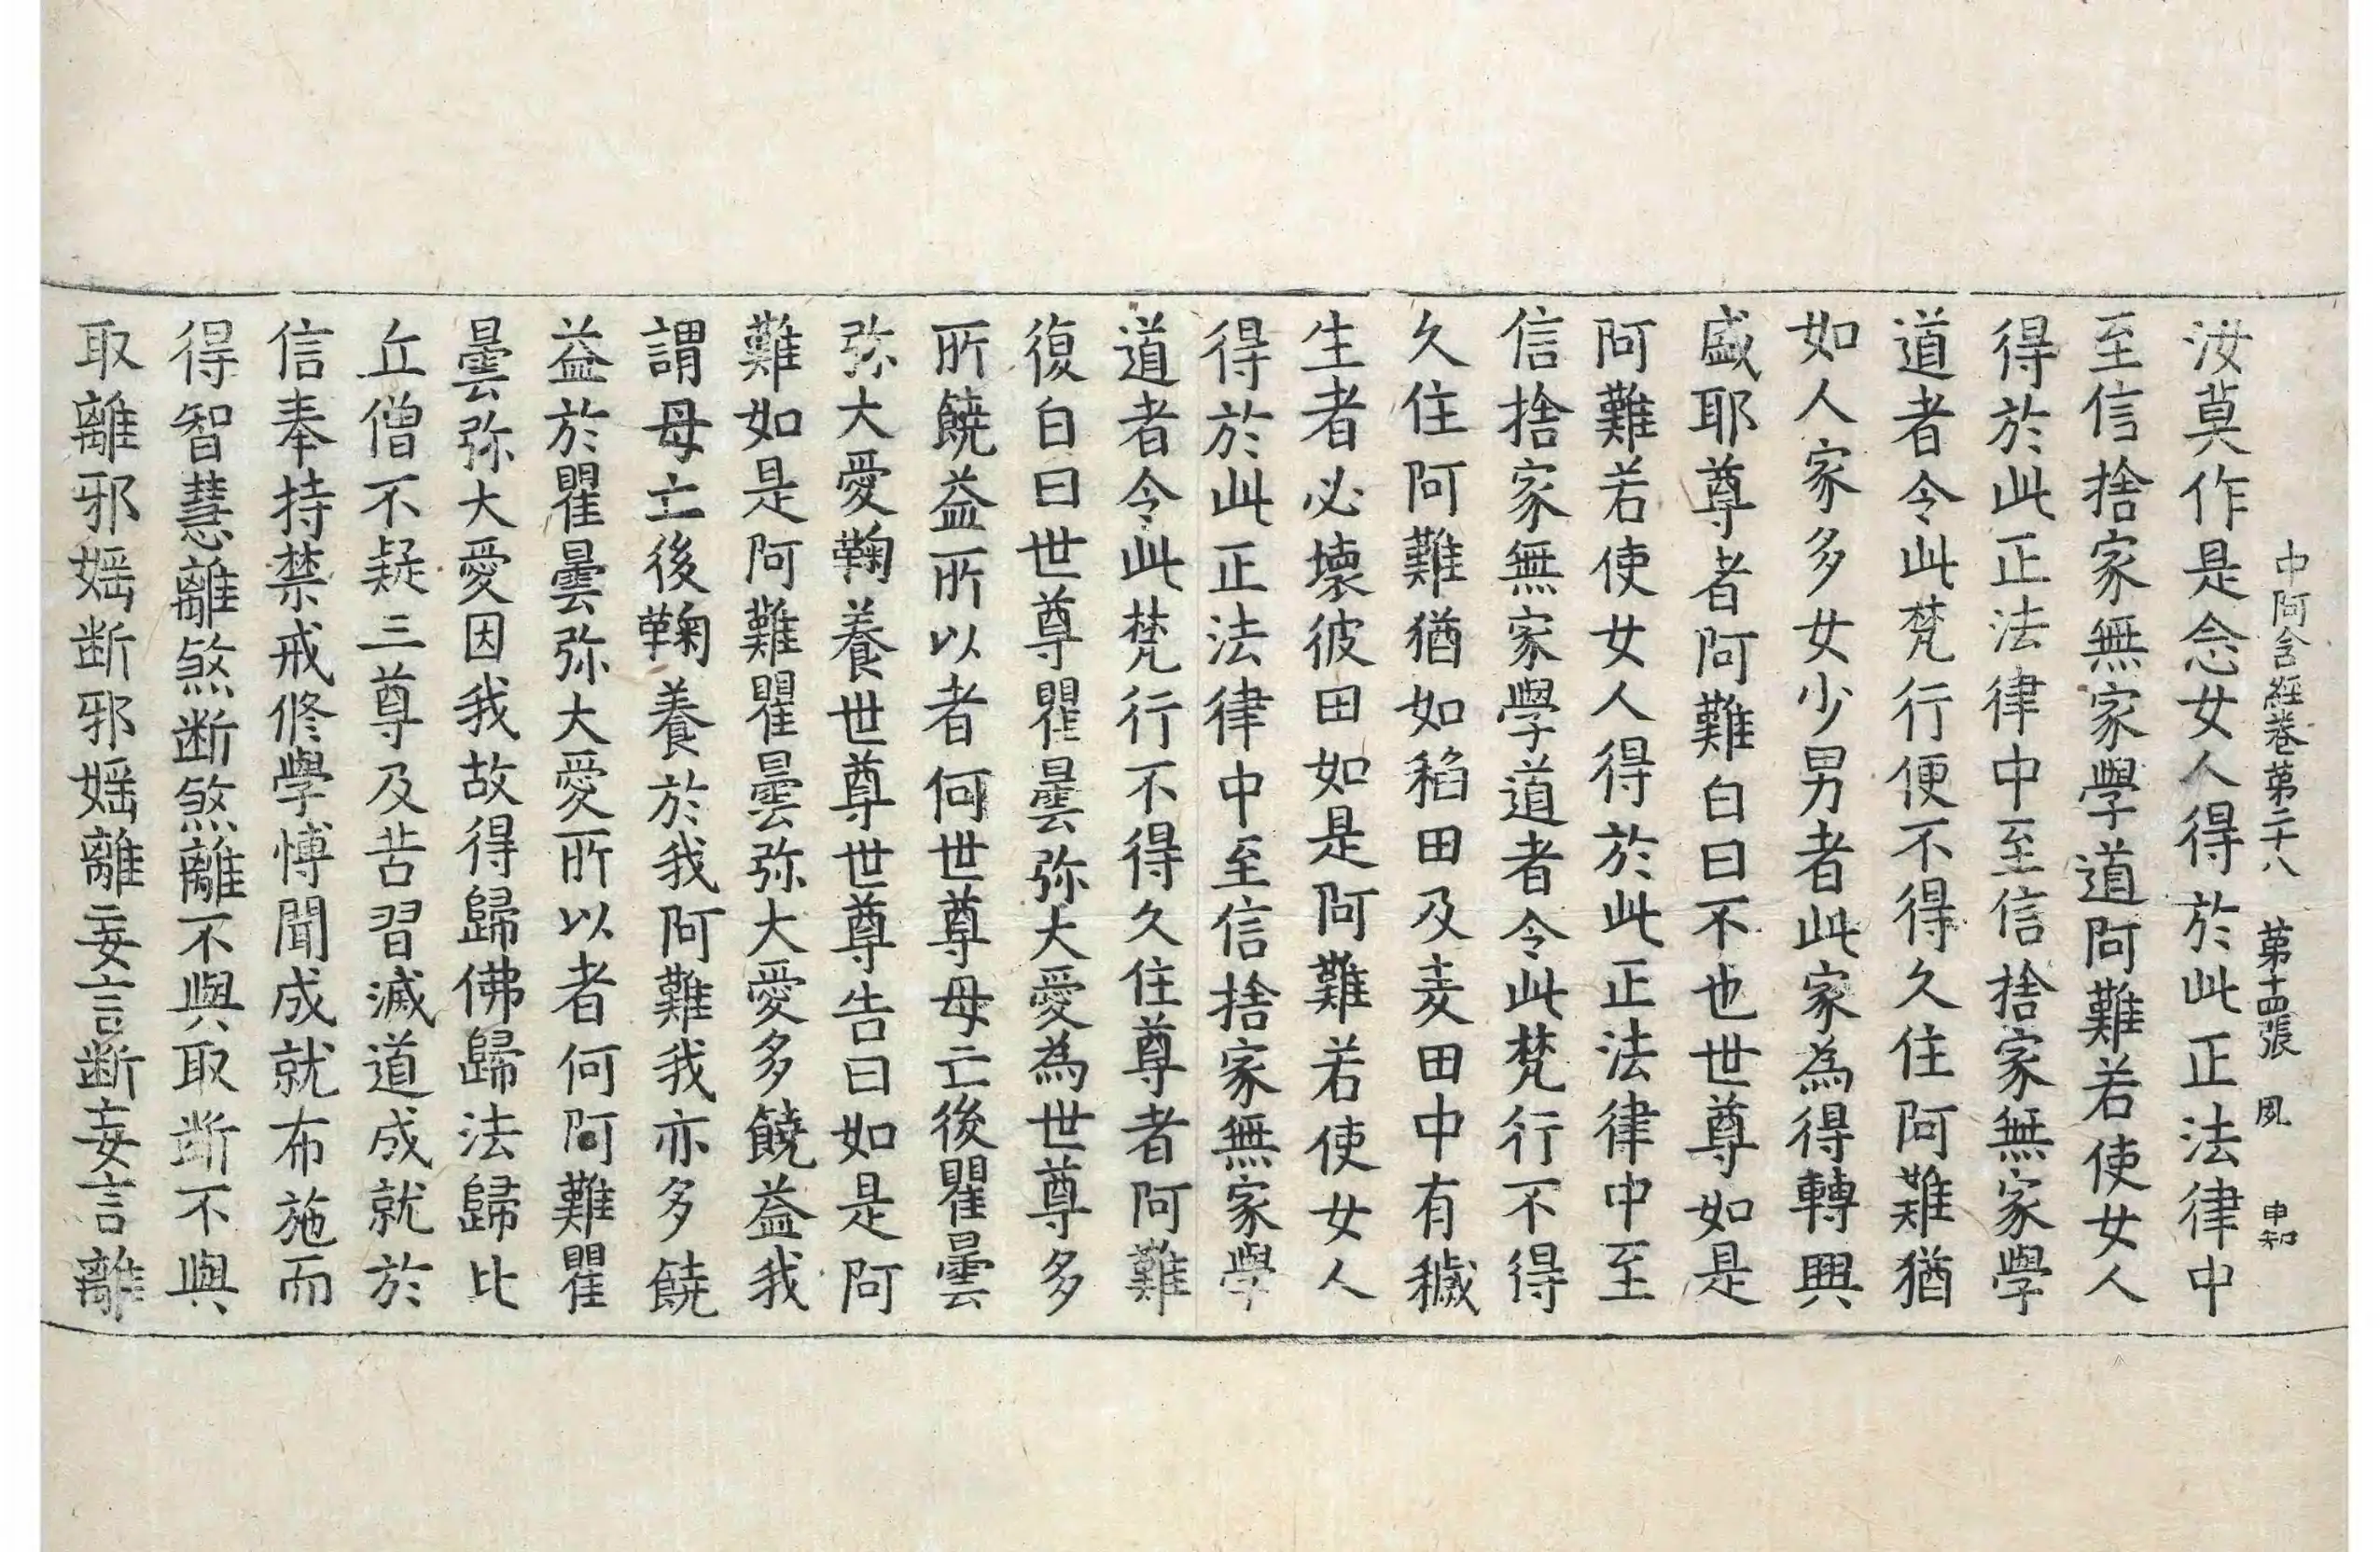 中阿含經卷第二十八 第十四張 風 申知
汝莫作是念女人得於此正法律中
至信捨家無家學道阿難若使女人
得於此正法律中至信捨家無家學
道者令此梵行便不得久住阿難猶
如人家多女少男者此家為得轉興
盛耶尊者阿難白曰不也世尊如是
阿難若使女人得於此正法律中至
信捨家無家學道者令此梵行不得
久住阿難猶如稻田及麦田中有穢
生者必壞彼田如是阿難若使女人
得於此正法律中至信捨家無家學
道者令此梵行不得久住尊者阿難
復白曰世尊瞿曇弥大愛為世尊多
所饒益所以者何世尊母亡後瞿曇
弥大愛鞠養世尊世尊告曰如是阿
難如是阿難瞿曇弥大愛多饒益我
謂母亡後鞠養於我阿難我亦多饒
益於瞿曇弥大愛所以者何阿難瞿
曇弥大愛因我故得歸佛歸法歸比
丘僧不疑三尊及苦習滅道成就於
信奉持禁戒修學博聞成就布施而
得智慧離煞断煞離不與取断不與
取離邪婬断邪婬離妄言断妄言離